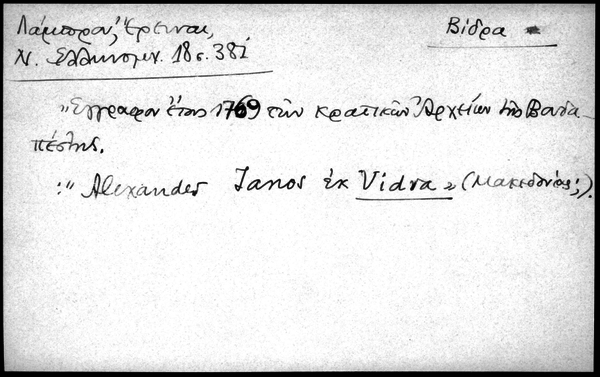 Λάμπρου, Ἔρευναι, Βίδρα
Ν. Ἑλληνομν. 18 σ. 381
"Ἔγγραφον ἔτους 1769 τῶν κρατικῶν Ἀρχείων τῆς Βουδα-
πέστης.
:" Alexander Janos ἐκ Vidra " (Μακεδονίας;).